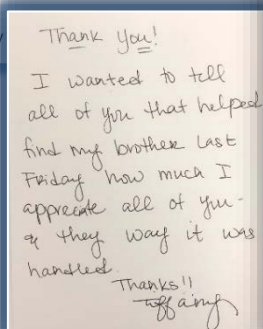 Thank you!
I wanted to tell
all of you that helped
find my brother last
Friday how much I
appreciate all of you -
& they way it was
handled.
Thanks!!
Tiffany